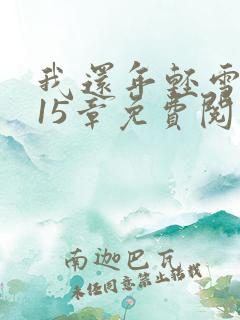 我還年輕需
15章免費閱
南迦巴瓦
未经同意禁止转载